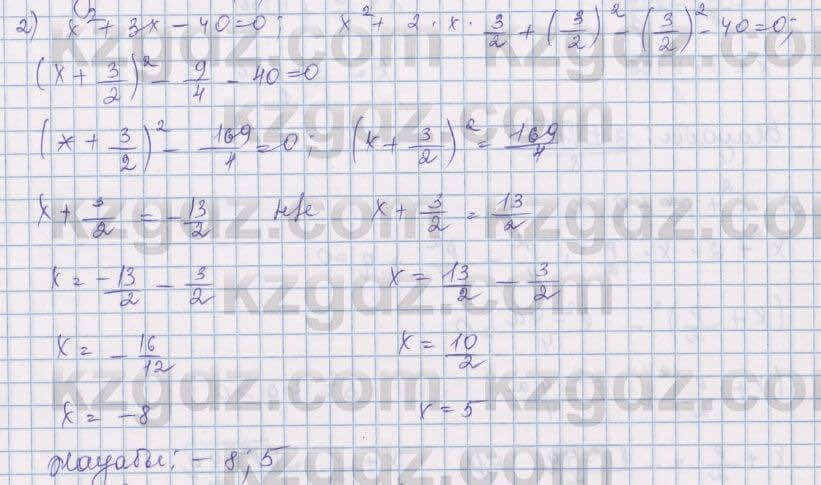 2) x² + 3x - 40 = 0; x² + 2 · x · 3/2 + (3/2)² - (3/2)² - 40 = 0;
(x + 3/2)² - 9/4 - 40 = 0
(x + 3/2)² - 169/4 = 0; (x + 3/2)² = 169/4
x + 3/2 = -13/2 не x + 3/2 = 13/2
x = -13/2 - 3/2 x = 13/2 - 3/2
x = -16/12 x = 10/2
x = -8 x = 5
Жауабы: -8; 5
kzgdz.com kzgdz.com
kzgdz.com
kzgdz.com kzgdz.com
kzgdz.com
kzgdz.com kzgdz.com
kzgdz.com